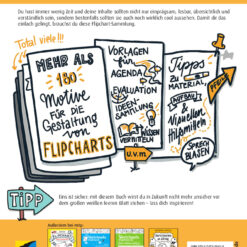 Du hast immer wenig Zeit und deine Inhalte sollten nicht nur einprägsam, lesbar, übersichtlich und
verständlich sein, sondern bestenfalls sollten sie auch noch wirklich cool aussehen. Damit dir das
einfach gelingt, brauchst du diese Flipchart-Sammlung.
Total viele!!!
MEHR ALS
180
Motive
FÜR DIE
GESTALTUNG
VON
FLIPCHARTS
VORLAGEN
FÜR
AGENDA
EVALUATION
IDEEN-
SAMMLUNG
WISSEN
VERMITTELN
u.v.m.
Tipps
ZU
MATERIAL,
AUFBAU
&
Visuellen
Hilfsmitteln
PFEILE
SPRECH
BLASEN
TiPP
Eins ist sicher: mit diesem Buch wirst du in Zukunft nicht mehr unsicher vor
dem großen weißen leeren Blatt stehen – lass dich inspirieren!
Außerdem bei mitp: